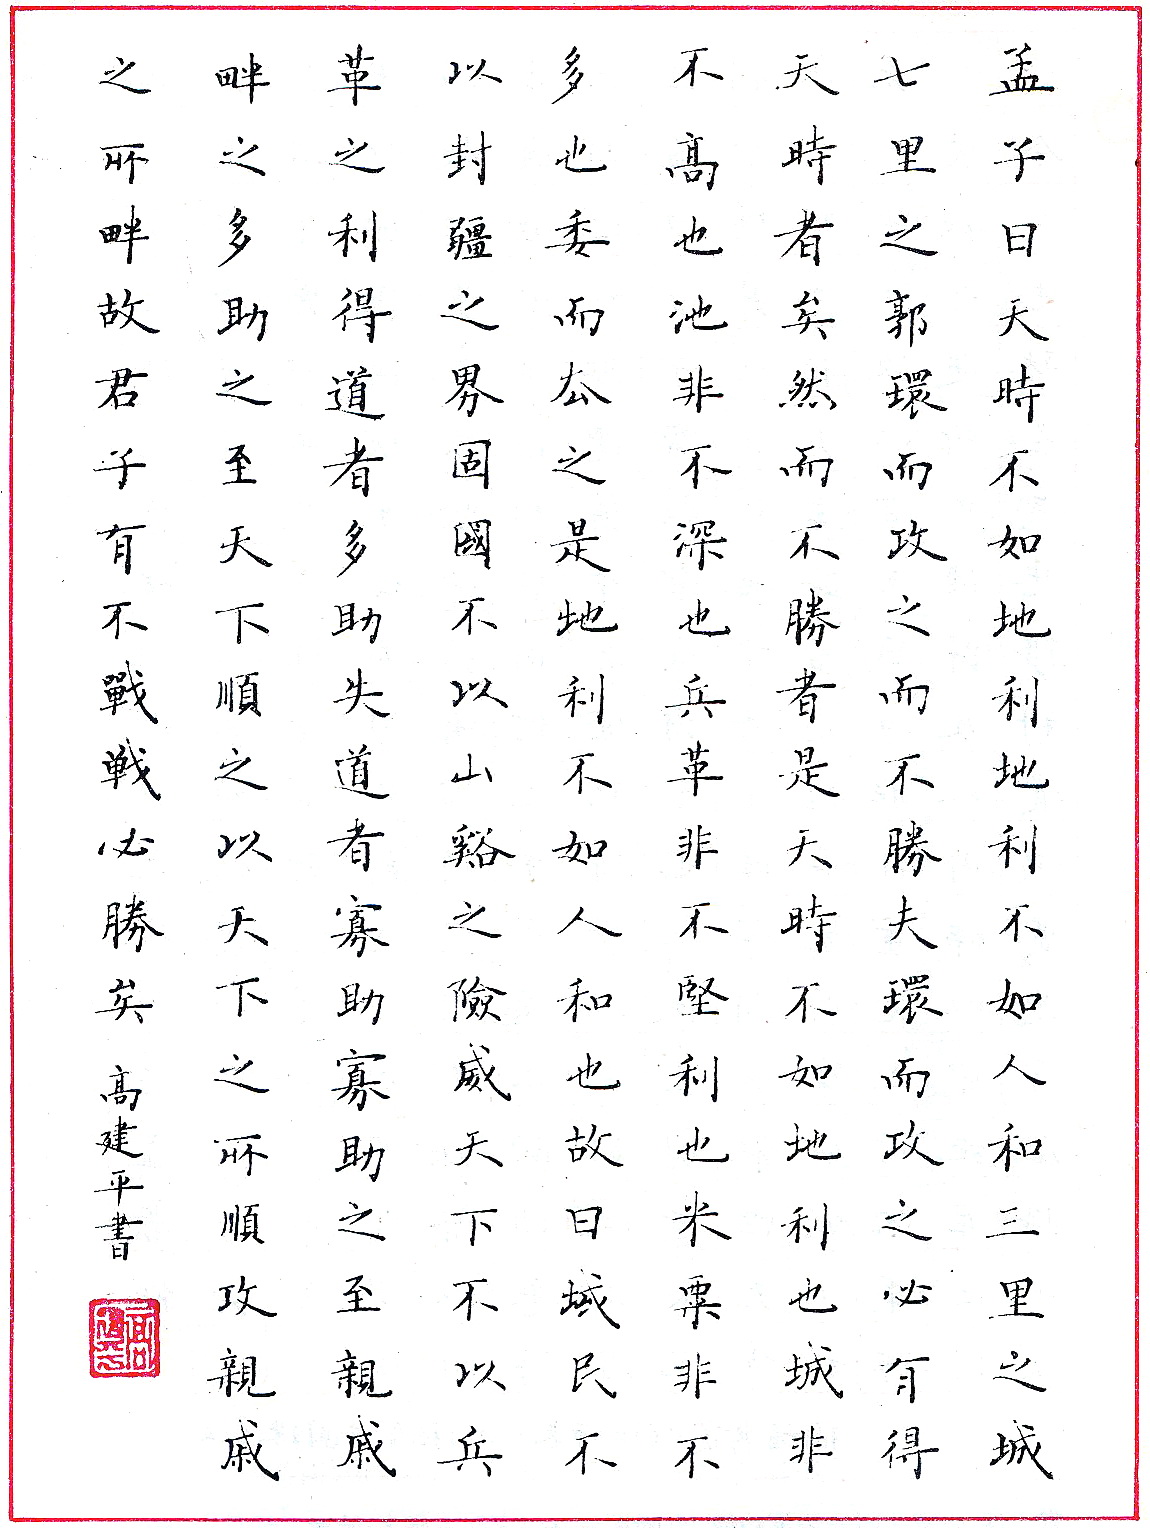 孟子曰天時不如地利地利不如人和三里之城
七里之郭環而攻之而不勝夫環而攻之必有得
天時者矣然而不勝者是天時不如地利也城非
不髙也池非不深也兵革非不堅利也米粟非不
多也委而去之是地利不如人和也故曰域民不
以封疆之界固國不以山谿之險威天下不以兵
革之利得道者多助失道者寡助寡助之至親戚
畔之多助之至天下順之以天下之所順攻親戚
之所畔故君子有不戰戰必勝矣 高建平書